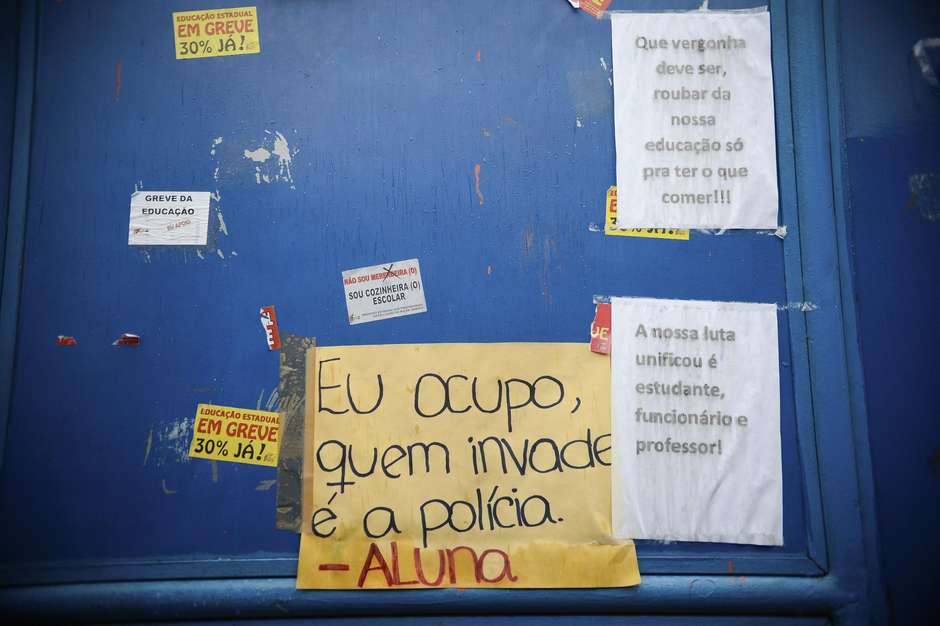 EDUCAÇÃO ESTADUAL
EM GREVE
30% JÁ!
Que vergonha
deve ser,
roubar da
nossa
educação só
pra ter o que
comer!!!
GREVE DA
EDUCAÇÃO
EU APOIO
30% JÁ!
NÃO SOU MERENDEIRA (O)
SOU COZINHEIRA (O)
ESCOLAR
A nossa luta
unificou é
estudante,
funcionário e
professor!
EDUCAÇÃO ESTADUAL
EM GREVE
30% JÁ!
EU OCUPO,
quem invade
é a polícia.
- ALUNA